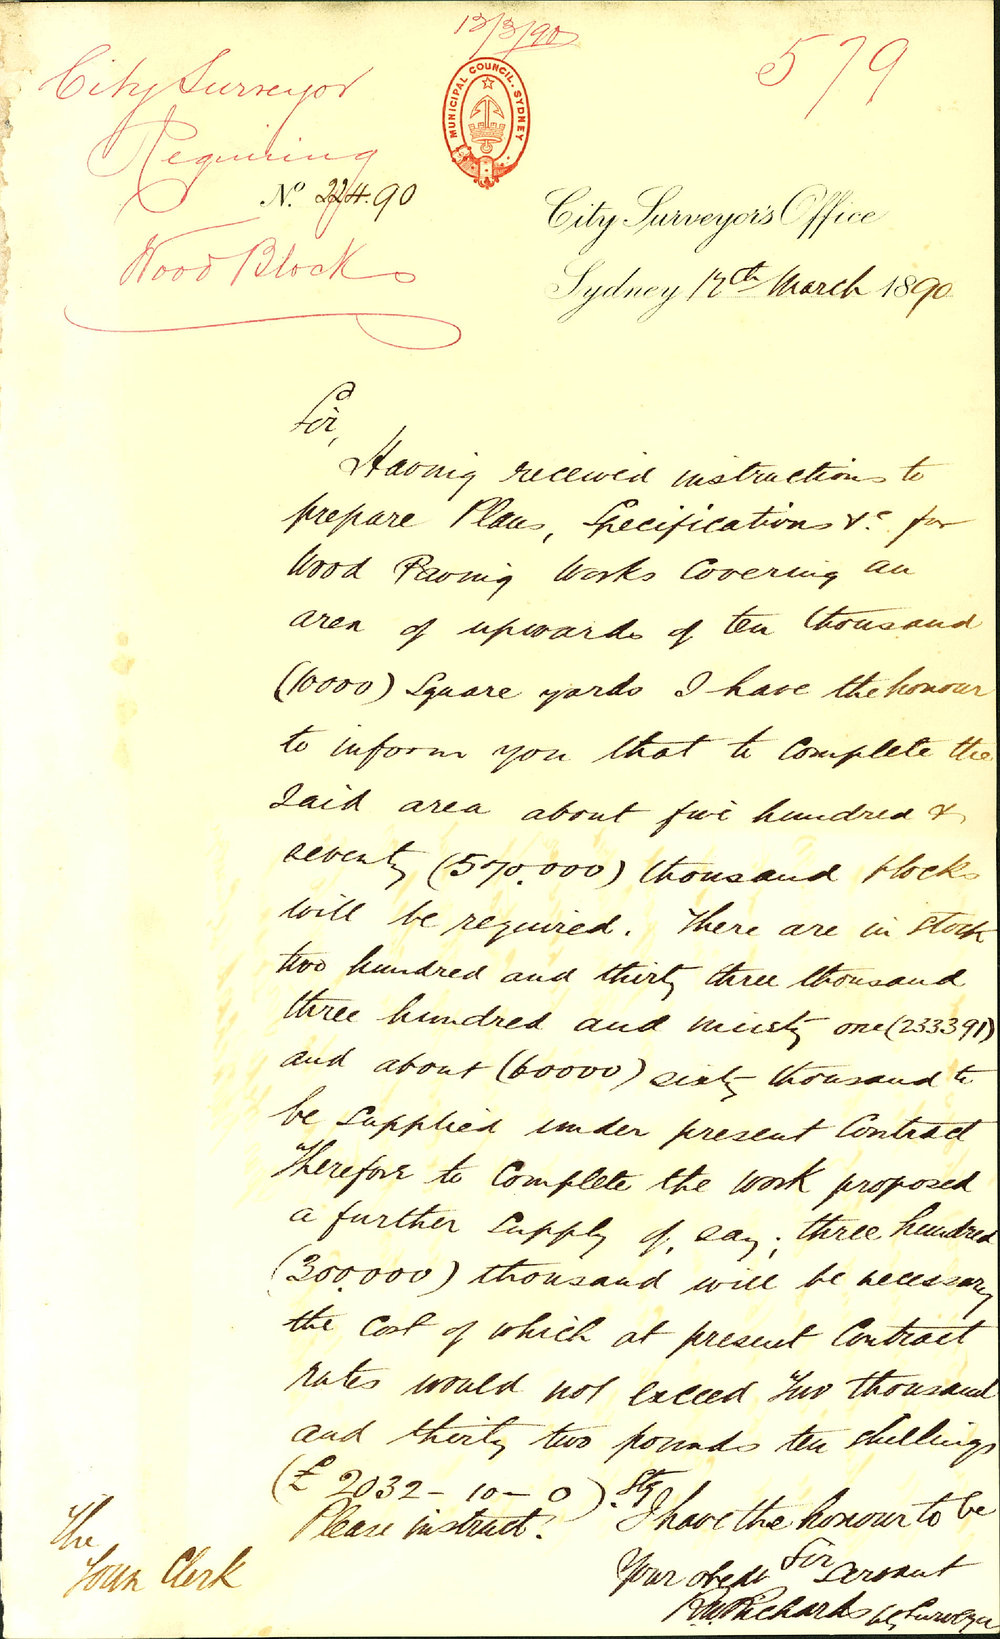 13/3/90
579
City Surveyor
Requiring
Wood Blocks
MUNICIPAL COUNCIL. SYDNEY
No. 224.90
City Surveyor's Office
Sydney 12th March 1890
Sir,
Having received instructions to
prepare Plans, Specifications &c for
Wood Paving Works Covering an
area of upwards of ten thousand
(10000) Square yards I have the honour
to inform you that to Complete the
Said area about five hundred &
seventy (570.000) thousand blocks
will be required. There are in Stock
two hundred and thirty three thousand
three hundred and ninety one (233391)
and about (60000) sixty thousand to
be Supplied under present Contract
Therefore to Complete the work proposed
a further Supply of, say; three hundred
(300.000) thousand will be necessary
the Cost of which at present Contract
rates would not exceed Two thousand
and thirty two pounds ten shillings
(£2032-10-0) Stg
Please instruct.
I have the honour to be
Sir
Your obedt Servant
R W Richards Cy Surveyor
The
Town Clerk